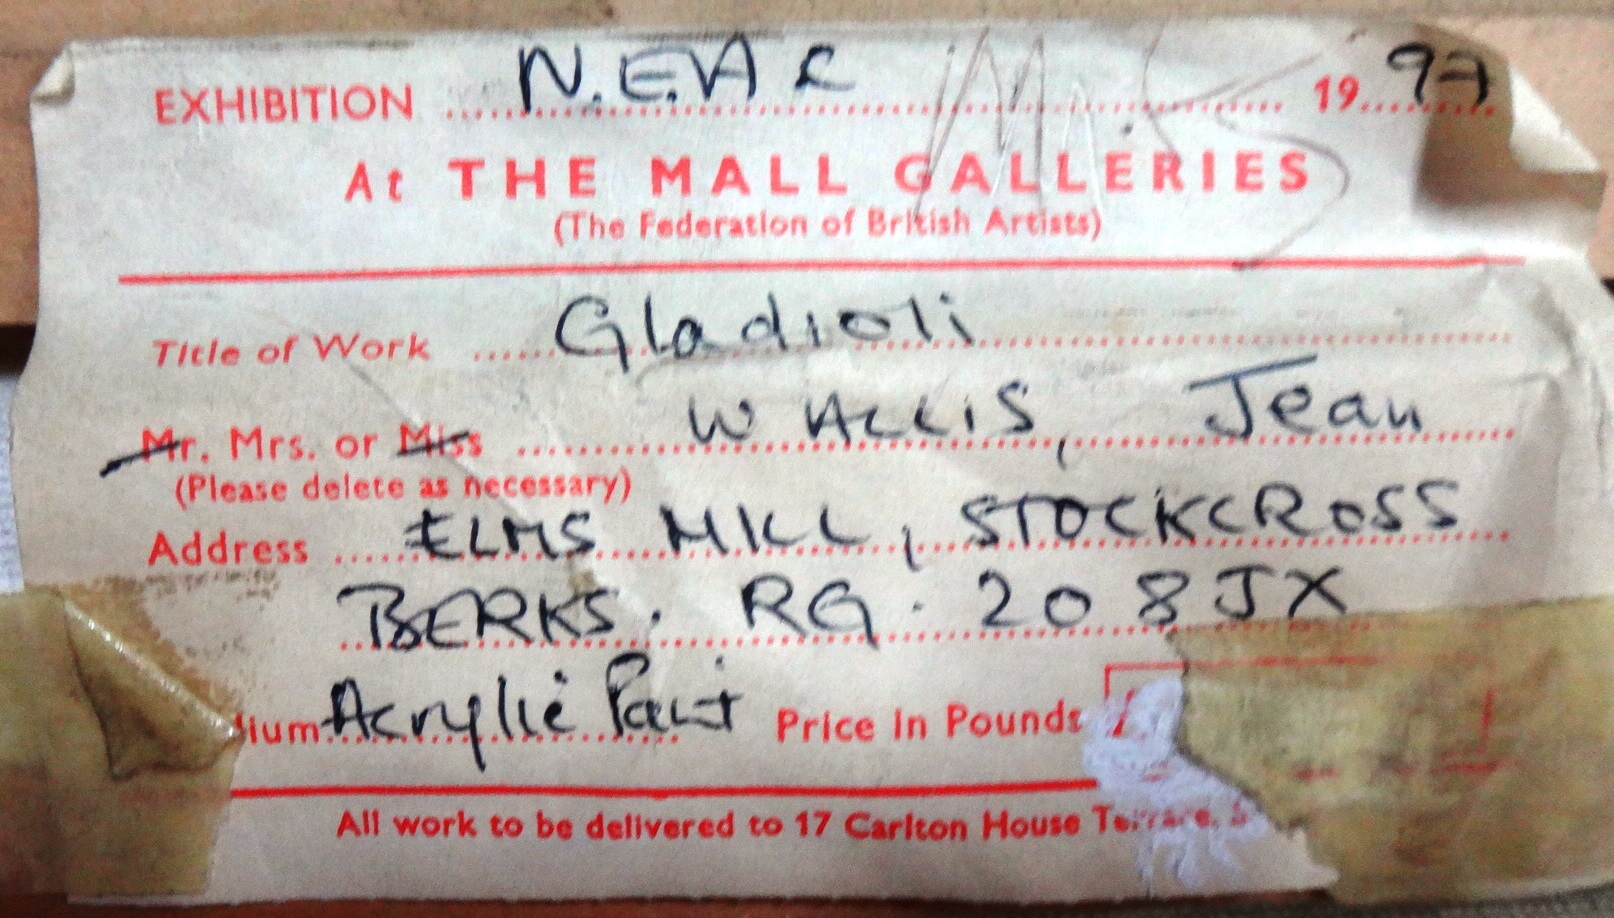 EXHIBITION N.E.A.C 19 97
At THE MALL GALLERIES
(The Federation of British Artists)
Title of Work Gladioli
Mr. Mrs. or Miss WALLIS, Jean
(Please delete as necessary)
Address ELMS HILL, STOCKCROSS
BERKS. RG. 20 8JX
ium Acrylic Paint Price in Pounds £
All work to be delivered to 17 Carlton House Terrace, S